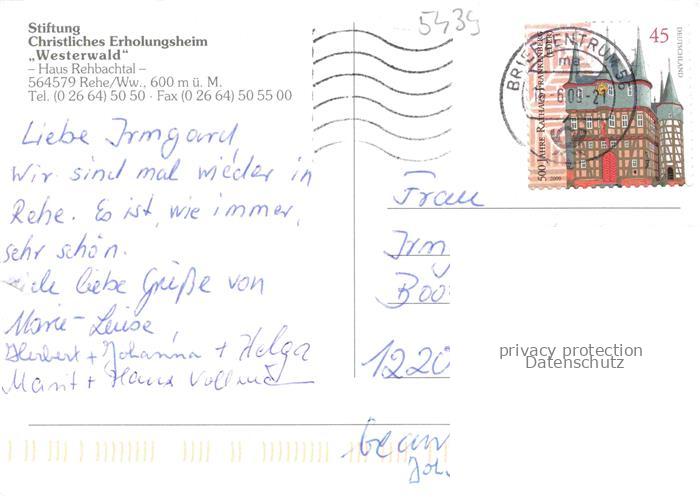 Stiftung
Christliches Erholungsheim
„Westerwald"
– Haus Rehbachtal –
564579 Rehe/Ww., 600 m ü. M.
Tel. (0 26 64) 50 50 · Fax (0 26 64) 50 55 00
5439
Liebe Irmgard,
Wir sind mal wieder in
Rehe. Es ist, wie immer,
sehr schön.
Viele liebe Grüße von
Marie-Luise,
Herbert + Johanna + Helga
Marit + Hans
BRIEFZENTRUM 56
45
DEUTSCHLAND
500 JAHRE RATHAUS FRANKENBERG (EDER)
2009
Frau
Irm
1220
privacy protection
Datenschutz
Joh.